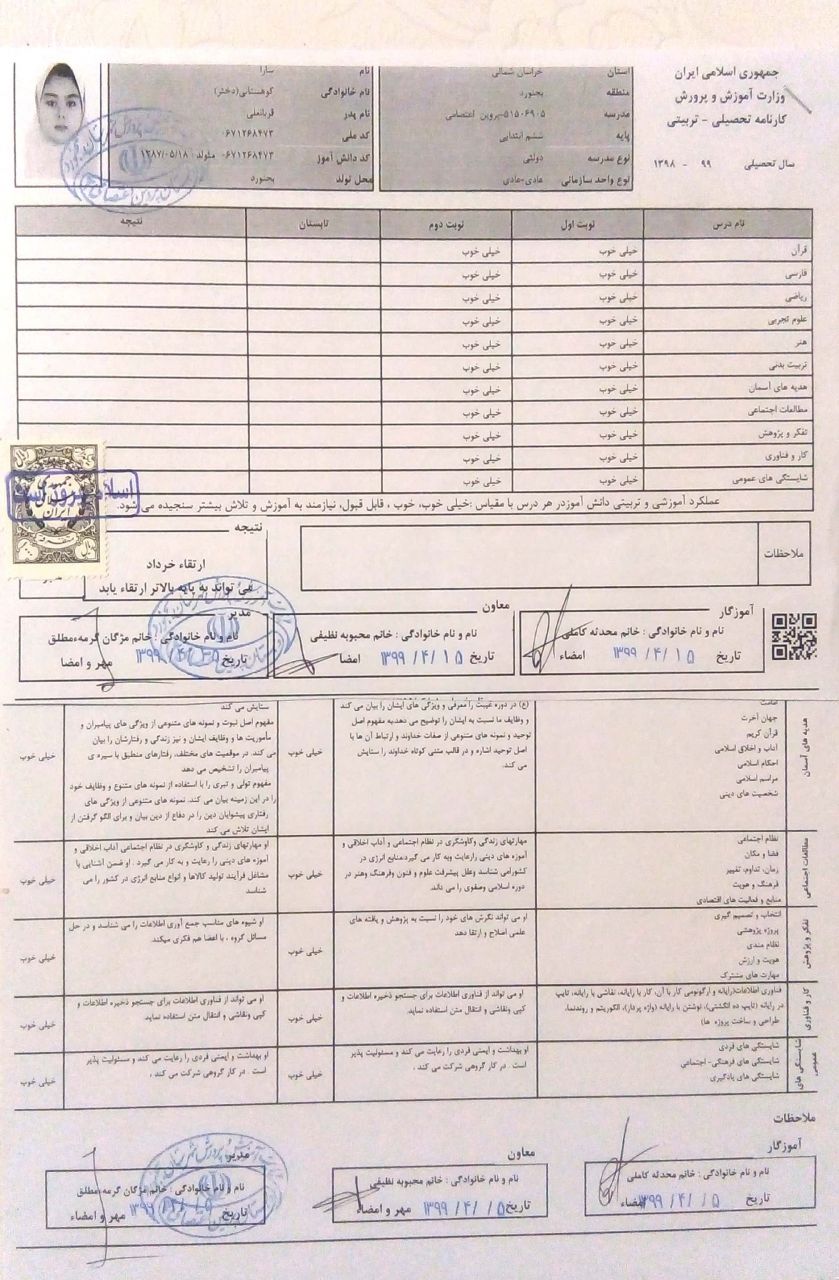 جمهوری اسلامی ایران
وزارت آموزش و پرورش
کارنامه تحصیلی - تربیتی
سال تحصیلی ۹۹ - ۱۳۹۸
استان خراسان شمالی
منطقه بجنورد
مدرسه ۵۱۵۰۶۹۰۵-پروین اعتصامی
پایه ششم ابتدایی
نوع مدرسه دولتی
نوع واحد سازمانی عادی-عادی
نام سارا
نام خانوادگی کوهستانی(دختر)
نام پدر قربانعلی
کد ملی ۰۶۷۱۲۶۸۴۷۳
کد دانش آموز ۰۶۷۱۲۶۸۴۷۳ متولد ۱۳۸۷/۰۵/۱۸
محل تولد بجنورد
نام درس نوبت اول نوبت دوم تابستان نتیجه
قرآن خیلی خوب خیلی خوب
فارسی خیلی خوب خیلی خوب
ریاضی خیلی خوب خیلی خوب
علوم تجربی خیلی خوب خیلی خوب
هنر خیلی خوب خیلی خوب
تربیت بدنی خیلی خوب خیلی خوب
هدیه های آسمان خیلی خوب خیلی خوب
مطالعات اجتماعی خیلی خوب خیلی خوب
تفکر و پژوهش خیلی خوب خیلی خوب
کار و فناوری خیلی خوب خیلی خوب
شایستگی های عمومی خیلی خوب خیلی خوب
عملکرد آموزشی و تربیتی دانش آموزدر هر درس با مقیاس :خیلی خوب، خوب ، قابل قبول، نیازمند به آموزش و تلاش بیشتر سنجیده می شود.
جمهوری
ایران
ملاحظات
نتیجه
ارتقاء خرداد
می تواند به پایه بالاتر ارتقاء یابد
آموزگار
نام و نام خانوادگی : خانم محدثه کاملی
تاریخ ۱۳۹۹/۴/۱۵ امضاء
معاون
نام و نام خانوادگی : خانم محبوبه نظیفی
تاریخ ۱۳۹۹/۴/۱۵ امضا
مدیر
نام و نام خانوادگی : خانم مژگان گرمه،مطلق
تاریخ مهر و امضا
هدیه های آسمان
امامت
جهان آخرت
قرآن کریم
آداب و اخلاق اسلامی
احکام اسلامی
مراسم اسلامی
شخصیت های دینی
(ع) در دوره غیبت را معرفی و ویژگی های ایشان را بیان می کند
و وظایف ما نسبت به ایشان را توضیح می دهدبه مفهوم اصل
توحید و نمونه های متنوعی از صفات خداوند و ارتباط آن ها با
اصل توحید اشاره و در قالب متنی کوتاه خداوند را ستایش
می کند.
خیلی خوب
ستایش می کند
مفهوم اصل نبوت و نمونه های متنوعی از ویژگی های پیامبران و
مأموریت ها و وظایف ایشان و نیز زندگی و رفتارشان را بیان
می کند. در موقعیت های مختلف، رفتارهای منطبق با سیره ی
پیامبران را تشخیص می دهد
مفهوم تولی و تبری را با استفاده از نمونه های متنوع و وظایف خود
را در این زمینه بیان می کند. نمونه های متنوعی از ویژگی های
رفتاری پیشوایان دین را در دفاع از دین بیان و برای الگو گرفتن از
ایشان تلاش می کند
خیلی خوب
مطالعات اجتماعی
نظام اجتماعی
فضا و مکان
زمان، تداوم، تغییر
فرهنگ و هویت
منابع و فعالیت های اقتصادی
مهارتهای زندگی وکاوشگری در نظام اجتماعی و آداب اخلاقی و
آموزه های دینی رارعایت وبه کار می گیرد،منابع انرژی در
کشورامی شناسد وعلل پیشرفت علوم و فنون وفرهنگ وهنر در
دوره اسلامی وصفوی را می داند.
خیلی خوب
او مهارتهای زندگی و کاوشگری در نظام اجتماعی آداب اخلاقی و
آموزه های دینی را رعایت و به کار می گیرد . او ضمن آشنایی با
مشاغل فرآیند تولید کالاها و انواع منابع انرژی در کشور را می
شناسد
خیلی خوب
تفکر و پژوهش
انتخاب و تصمیم گیری
پروژه پژوهشی
نظام مندی
هویت و ارزش
مهارت های مشترک
او می تواند نگرش های خود را نسبت به پژوهش و یافته های
علمی اصلاح و ارتقا دهد
خیلی خوب
او شیوه های مناسب جمع آوری اطلاعات را می شناسد و در حل
مسائل گروه ، با اعضا هم فکری میکند.
خیلی خوب
کار و فناوری
فناوری اطلاعات(رایانه و ارگونومی کار با آن، کار با رایانه، نقاشی با رایانه، تایپ
در رایانه (تایپ ده انگشتی)، نوشتن با رایانه (واژه پرداز)، الگوریتم و روندنما،
طراحی و ساخت پروژه ها)
او می تواند از فناوری اطلاعات برای جستجو ذخیره اطلاعات و
کپی ونقاشی و انتقال متن استفاده نماید.
خیلی خوب
او می تواند از فناوری اطلاعات برای جستجو ذخیره اطلاعات و
کپی ونقاشی و انتقال متن استفاده نماید.
خیلی خوب
شایستگی های عمومی
شایستگی های فردی
شایستگی های فرهنگی- اجتماعی
شایستگی های یادگیری
او بهداشت و ایمنی فردی را رعایت می کند و مسئولیت پذیر
است . در کار گروهی شرکت می کند .
خیلی خوب
او بهداشت و ایمنی فردی را رعایت می کند و مسئولیت پذیر
است . در کار گروهی شرکت می کند .
خیلی خوب
ملاحظات
آموزگار
نام و نام خانوادگی : خانم محدثه کاملی
تاریخ ۱۳۹۹/۴/۱۵ امضاء
معاون
نام و نام خانوادگی : خانم محبوبه نظیفی
تاریخ ۱۳۹۹/۴/۱۵ مهر و امضاء
مدیر
نام و نام خانوادگی : خانم مژگان گرمه،مطلق
تاریخ مهر و امضاء